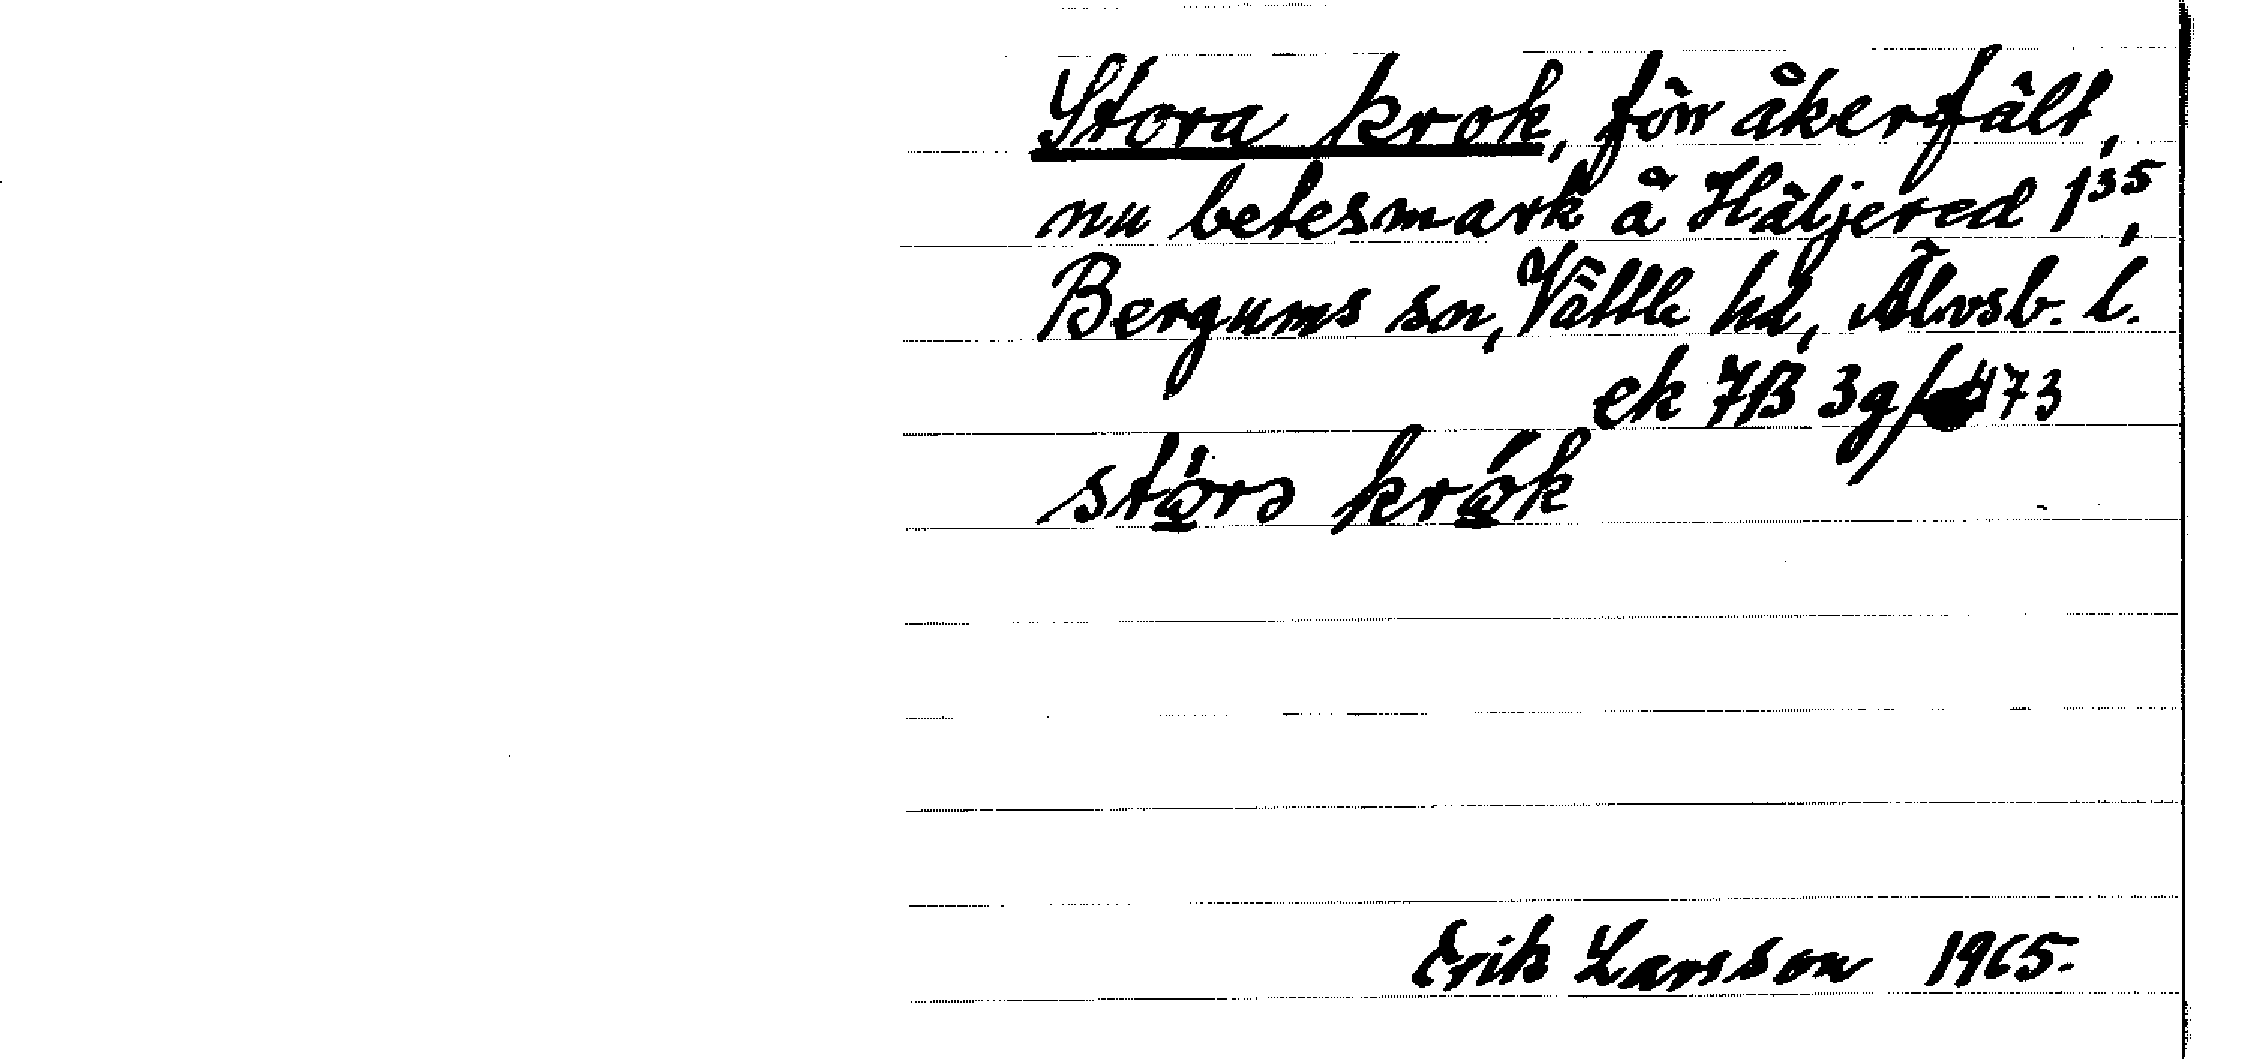 Stora krok, förr åkerfält,
nu betesmark å Häljered 1³⁵,
Bergums sn, Vättle hd, Älvsb. l.
ek 7B 3g/473
stö̱́rə krö̱́k
Erik Larsson 1965.